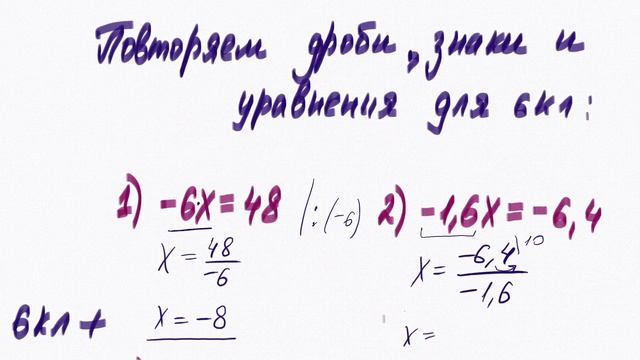 Повторяем дроби, знаки и
уравнения для 6 кл:
1) -6x = 48 |:(-6)
x = 48/-6
x = -8
2) -1,6x = -6,4
x = -6,4/-1,6 \10
x =
6кл+